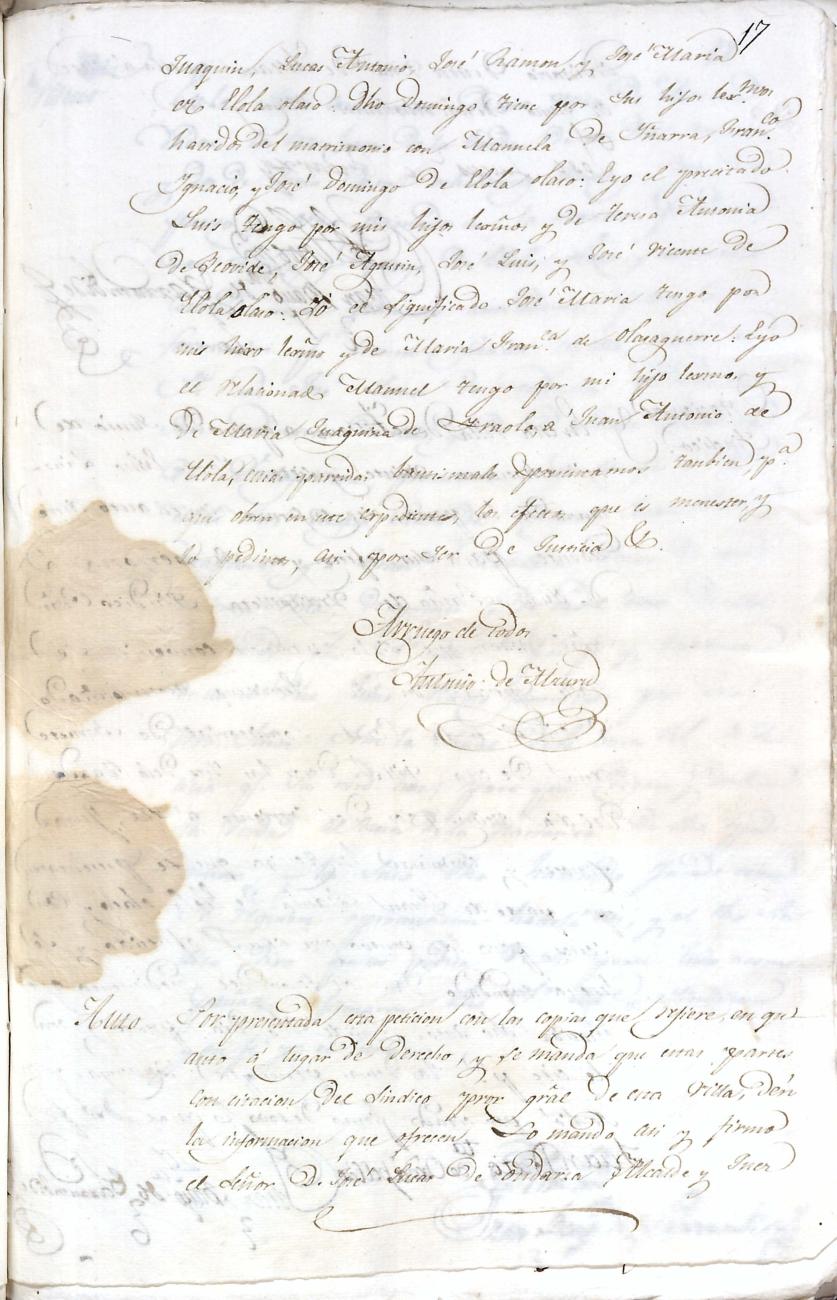 17
Juaquin, Lucas Antonio, José Ramon y José Maria
de Elola olaso: dho Domingo tiene por sus hijos lexmos
havidos del matrimonio con Manuela de Yñarra, Franco
Ignacio, y José Domingo de Elola olaso: Eyo el precitado
Luis tengo por mis hijos lexmos y de Teresa Antonia
de Beovide, José Aqustin, José Luis, y José Vicente de
Elola olaso: Yo el significado José Maria tengo por
mis hixo lexmo y de Maria Franca de Olazaguerre: Eyo
el relacionado Manuel tengo por mi hijo lexmo, y
de Maria Juaquina de, á Juan Antonio de
Elola, cuias partidas bautismales presentamos tanbien, pa
que obren en este expediente, los efectos que es menester, y
lo pedimos, asi por ser de Justicia &.
Arruego de todos
Antonio de Alzuru
Auto Por presentada esta peticion con las copias que refiere, en qto
auto á lugar de derecho, y se manda que estas partes
con citacion del Sindico pror gral de esta villa, dén
la informacion que ofrecen: Lo mandó asi y firmó
el Señor D. José Lucas de Alcalde y Juez